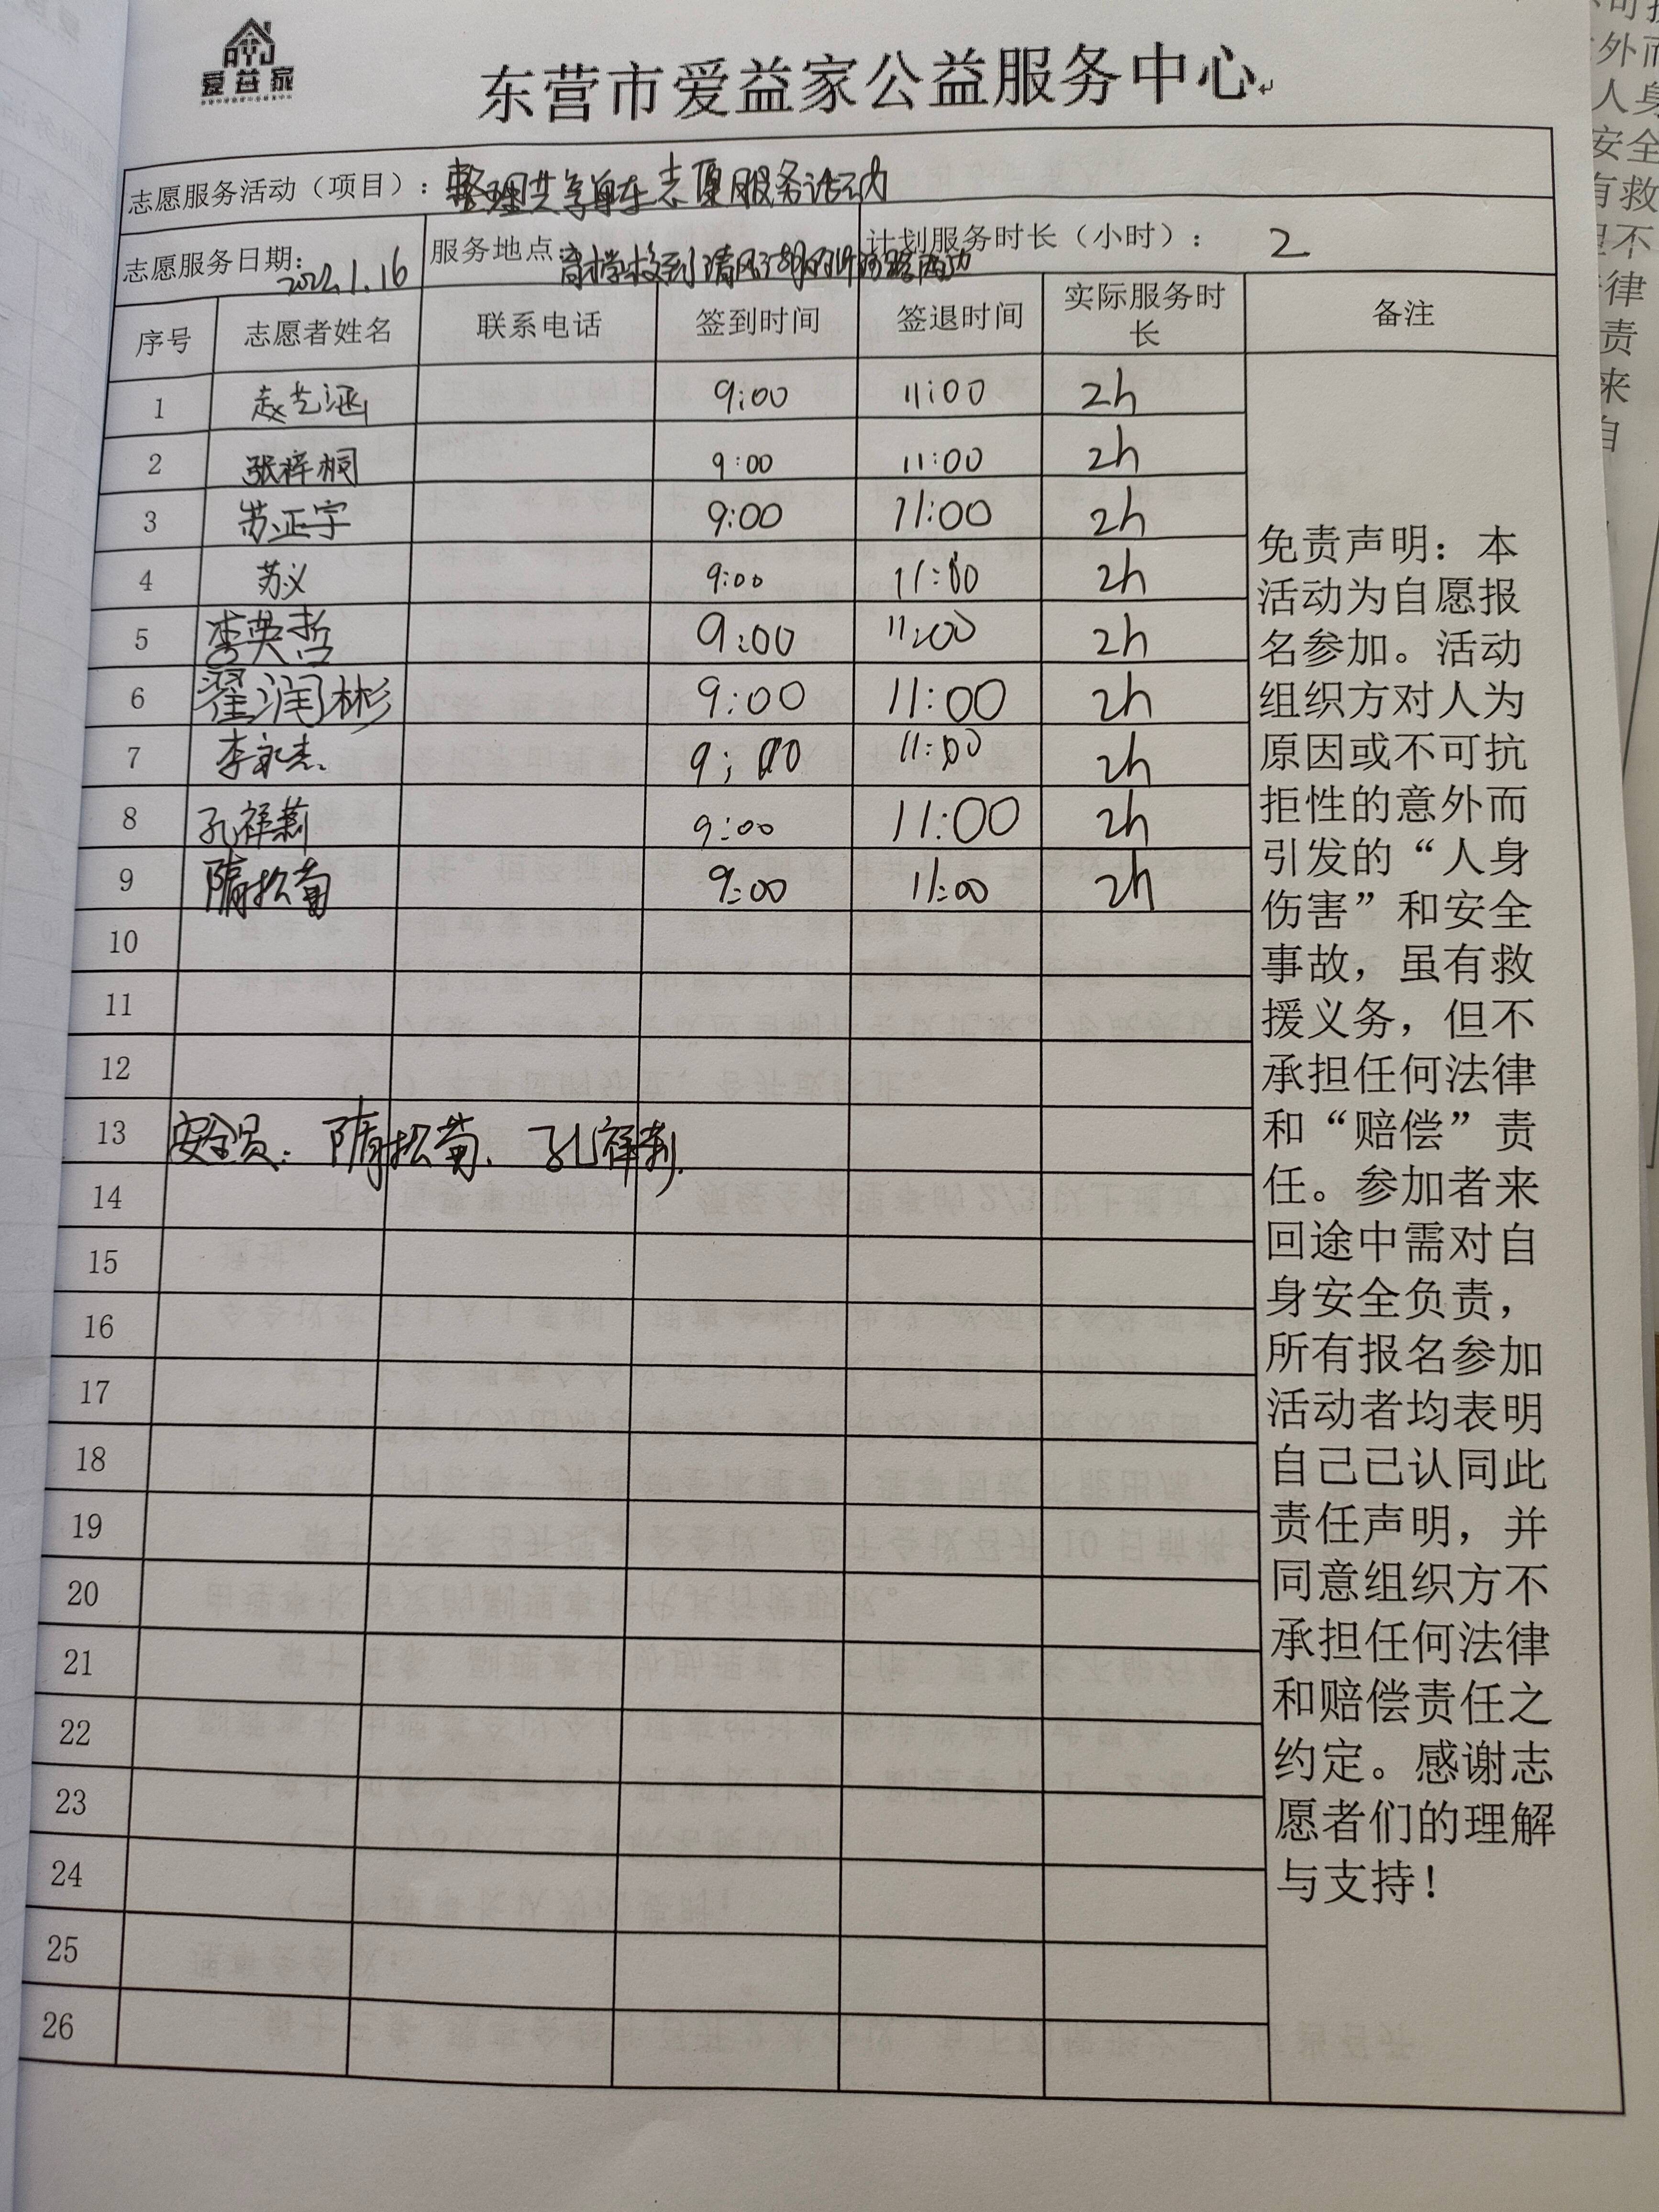 AYJ
爱益家
东营市爱益家公益服务中心
志愿服务活动（项目）：整理共享单车志愿服务活动
志愿服务日期：2022.1.16 服务地点： 计划服务时长（小时）：2
序号 志愿者姓名 联系电话 签到时间 签退时间 实际服务时长 备注
1 赵艺涵 9:00 11:00 2h
2 张梓桐 9:00 11:00 2h
3 苏正宇 9:00 11:00 2h
4 苏义 9:00 11:00 2h
5 李英哲 9:00 11:00 2h
6 翟润彬 9:00 11:00 2h
7 李永杰 9:00 11:00 2h
8 孔祥莉 9:00 11:00 2h
9 隋松菊 9:00 11:00 2h
10
11
12
13 安全员：隋松菊、孔祥莉.
14
15
16
17
18
19
20
21
22
23
24
25
26
免责声明：本
活动为自愿报
名参加。活动
组织方对人为
原因或不可抗
拒性的意外而
引发的“人身
伤害”和安全
事故，虽有救
援义务，但不
承担任何法律
和“赔偿”责
任。参加者来
回途中需对自
身安全负责，
所有报名参加
活动者均表明
自己已认同此
责任声明，并
同意组织方不
承担任何法律
和赔偿责任之
约定。感谢志
愿者们的理解
与支持！